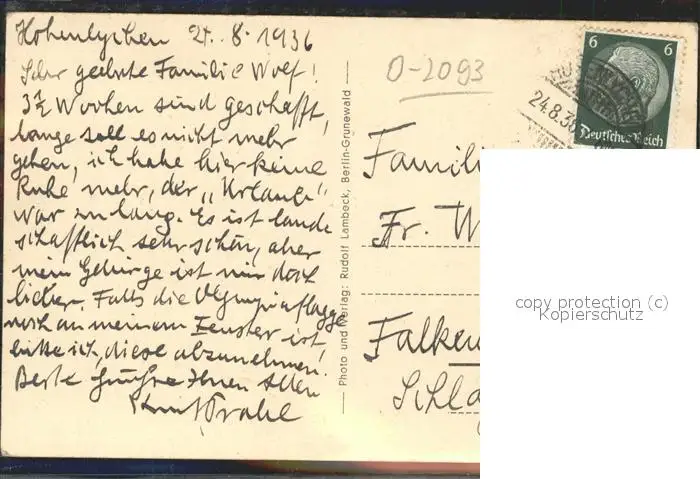 Hohenlychen 24. 8. 1936
Sehr geehrte Familie Wolf!
3½ Wochen sind geschafft,
lange soll es nicht mehr
gehen, ich habe hier keine
Ruhe mehr, der „Urlaub“
war zu lang. Es ist land-
schaftlich sehr schön, aber
mein Gebirge ist mir doch
lieber. Falls die Olympiaflagge
noch an meinem Fenster ist,
bitte ich, diese abzunehmen.
Beste Grüße Ihnen allen
Kurt
Photo und Verlag: Rudolf Lambeck, Berlin-Grunewald
O-2093
6 6
Deutsches Reich
24.8.36
Famili
Fr. W
Falken
Schla
copy protection (c)
Kopierschutz